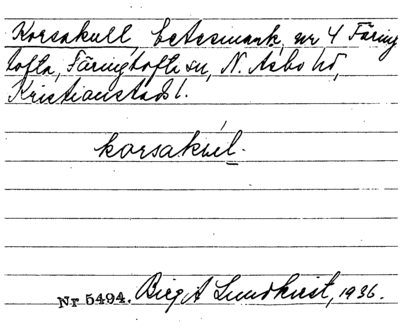 Korsakull, betesmark, nr 4 Färing
tofta, Färingtofta sn, N. Åsbo hd,
Kristianstads l.
korsakul.
Nr 5494. Birg A Lundkvist, 1936.